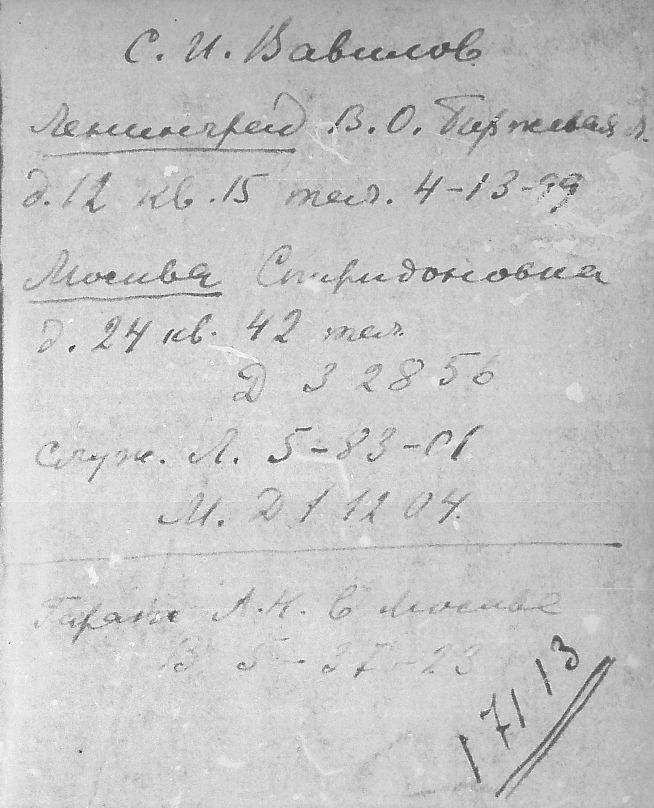 С. И. Вавилов
Ленинград В.О. Биржевая л.
д. 12 кв. 15 тел. 4-13-99
Москва Спиридоновка
д. 24 кв. 42 тел.
Д 3 28 56
служ. Л. 5-83-01
М. Д 1 12 04.
Гараж А.Н. в Москве
В 5-37-23
17113